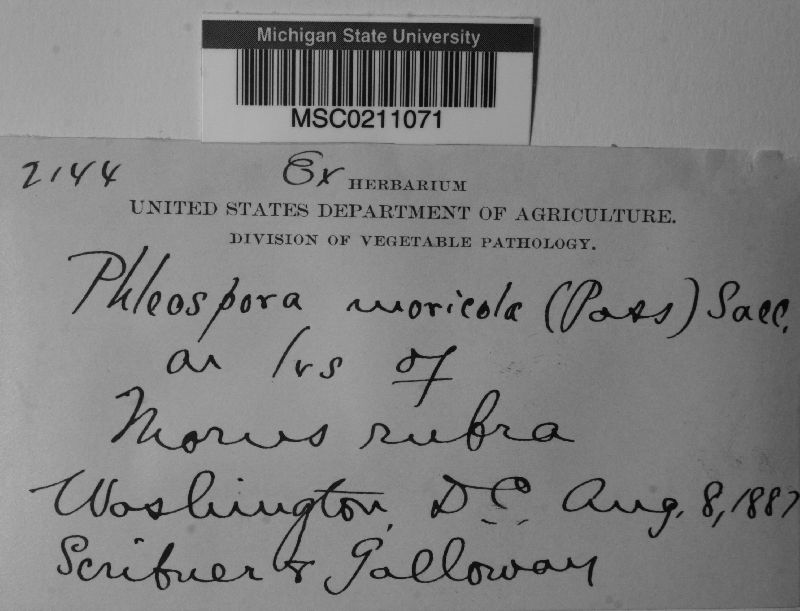 Michigan State University
MSC0211071
2144 Ex HERBARIUM
UNITED STATES DEPARTMENT OF AGRICULTURE.
DIVISION OF VEGETABLE PATHOLOGY.
Phleospora moricola (Pass) Sacc.
on lvs of
Morus rubra
Washington, D.C. Aug. 8, 1887
Scribner & Galloway